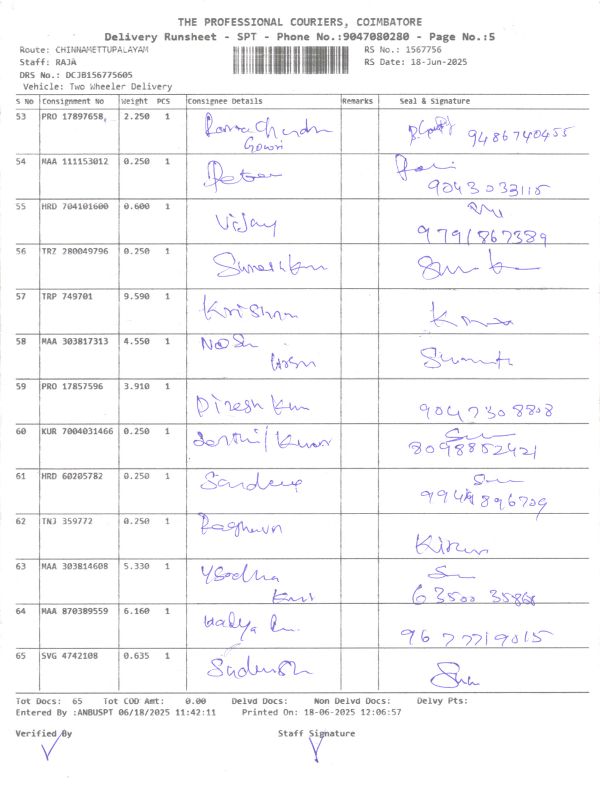 THE PROFESSIONAL COURIERS, COIMBATORE
Delivery Runsheet - SPT - Phone No.:9047080280 - Page No.:5
Route: CHINNAMETTUPALAYAM RS No.: 1567756
Staff: RAJA RS Date: 18-Jun-2025
DRS No.: DCJB156775605
Vehicle: Two Wheeler Delivery
S No Consignment No Weight PCS Consignee Details Remarks Seal & Signature
53 PRO 17897658 2.250 1 Ramachandra 9486740455
Gowri
54 MAA 111153012 0.250 1 Peter
9043033115
55 HRD 704101600 0.600 1 Vijay
9791867389
56 TRZ 280049796 0.250 1 Suresh Kum
57 TRP 749701 9.590 1 Krishna
58 MAA 303817313 4.550 1
59 PRO 17857596 3.910 1 Dinesh Kum 9047308808
60 KUR 7004031466 0.250 1 Senthil Kumar
8098852421
61 HRD 60205782 0.250 1 Sandeep
62 TNJ 359772 0.250 1 Raghavan
Kiran
63 MAA 303814608 5.330 1 Ysodha
64 MAA 870389559 6.160 1
9677719015
65 SVG 4742108 0.635 1
Tot Docs: 65 Tot COD Amt: 0.00 Delvd Docs: Non Delvd Docs: Delvy Pts:
Entered By :ANBUSPT 06/18/2025 11:42:11 Printed On: 18-06-2025 12:06:57
Verified By Staff Signature